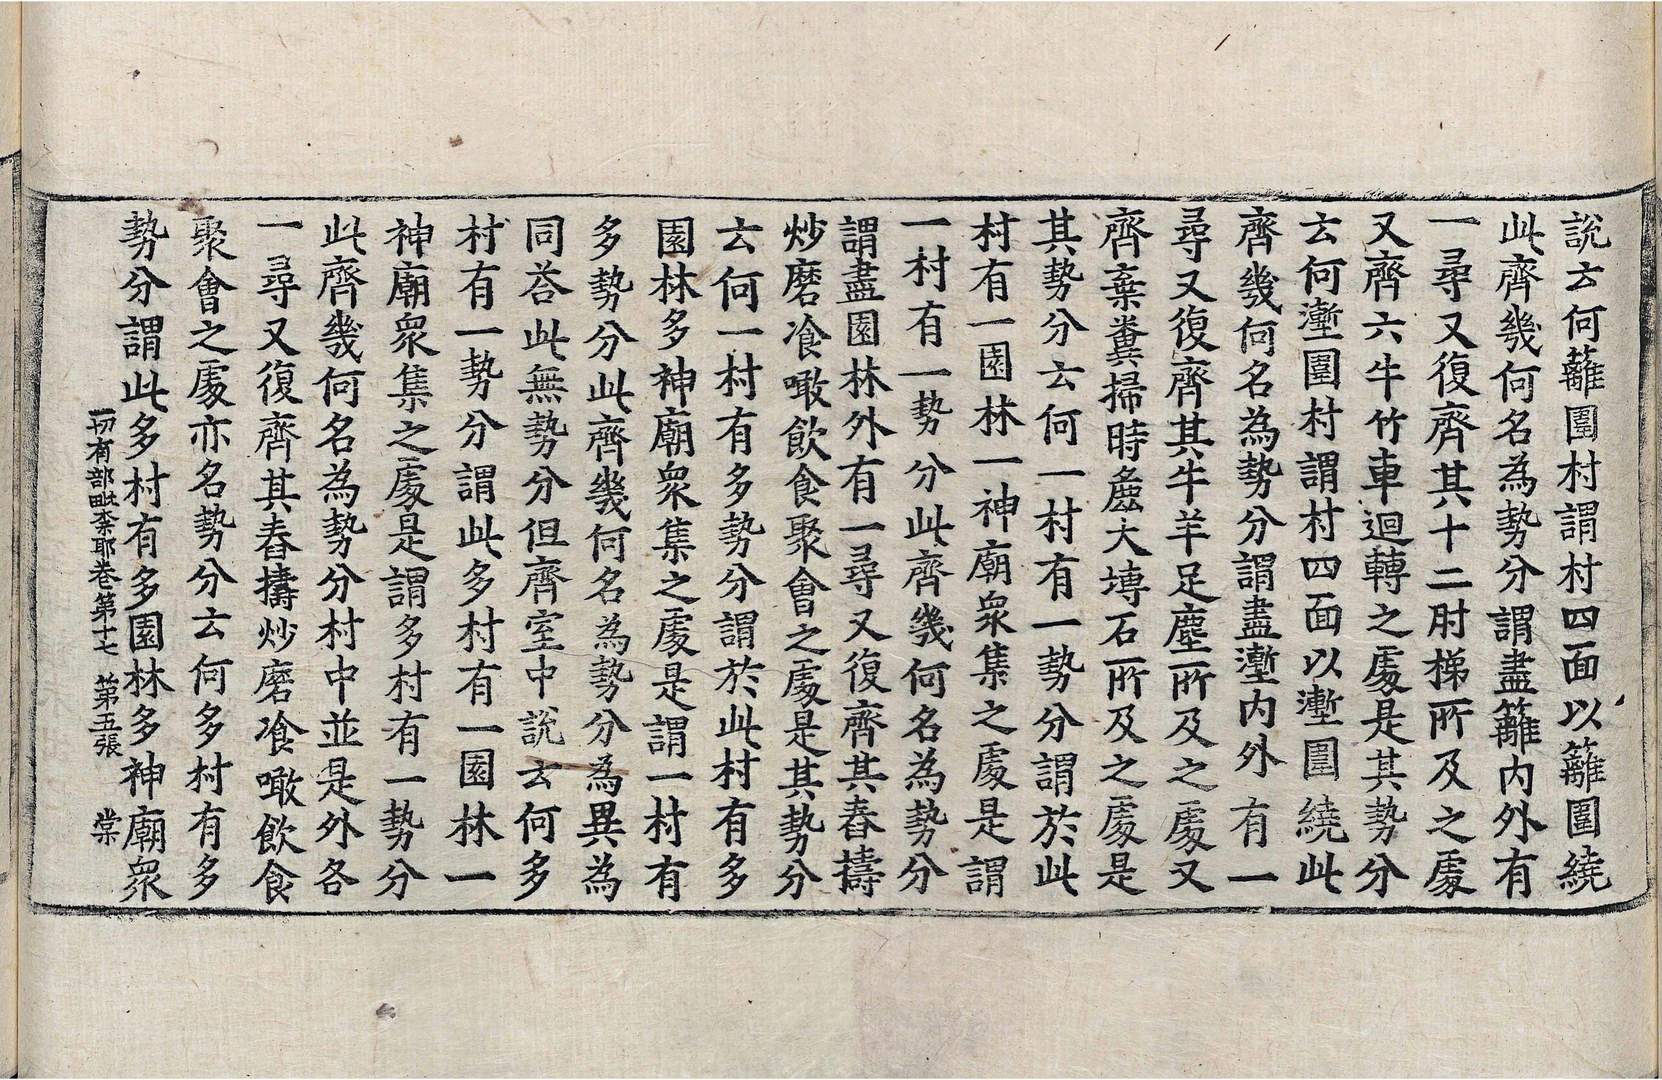 說云何籬圍村謂村四面以籬圍繞
此齊幾何名為勢分謂盡籬內外有
一尋又復齊其十二肘梯所及之處
又齊六牛竹車迴轉之處是其勢分
云何塹圍村謂村四面以塹圍繞此
齊幾何名為勢分謂盡塹內外有一
尋又復齊其牛羊足塵所及之處又
齊棄糞掃時麁大塼石所及之處是
其勢分云何一村有一勢分謂於此
村有一園林一神廟眾集之處是謂
一村有一勢分此齊幾何名為勢分
謂盡園林外有一尋又復齊其舂擣
炒磨飡噉飲食聚會之處是其勢分
云何一村有多勢分謂於此村有多
園林多神廟眾集之處是謂一村有
多勢分此齊幾何名為勢分為異為
同荅此無勢分但齊室中說云何多
村有一勢分謂此多村有一園林一
神廟眾集之處是謂多村有一勢分
此齊幾何名為勢分村中並是外各
一尋又復齊其舂擣炒磨飡噉飲食
聚會之處亦名勢分云何多村有多
勢分謂此多村有多園林多神廟眾
一切有部毗柰耶卷第十七 第五張 棠